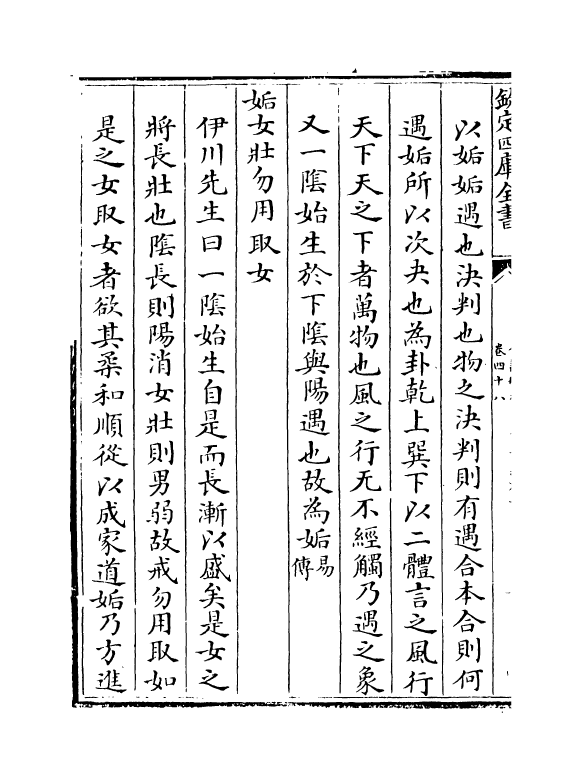 欽定四庫全書
卷四十八
以姤姤遇也決判也物之決判則有遇合本合則何
遇姤所以次夬也為卦乾上巽下以二體言之風行
天下天之下者萬物也風之行无不經觸乃遇之象
又一陰始生於下陰與陽遇也故為姤易傳
姤女壯勿用取女
伊川先生曰一陰始生自是而長漸以盛矣是女之
將長壯也陰長則陽消女壯則男弱故戒勿用取如
是之女取女者欲其柔和順從以成家道姤乃方進